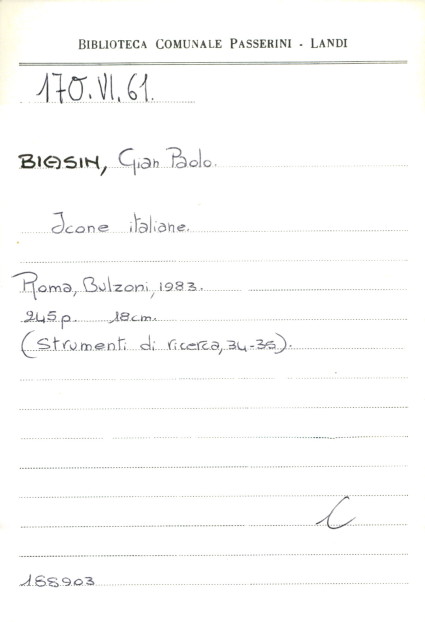 BIBLIOTECA COMUNALE PASSERINI - LANDI
170.VI.61.
BIASIN, Gian Paolo.
Icone italiane.
Roma, Bulzoni, 1983.
245p. 18cm.
(Strumenti di ricerca, 34-35).
C
168903